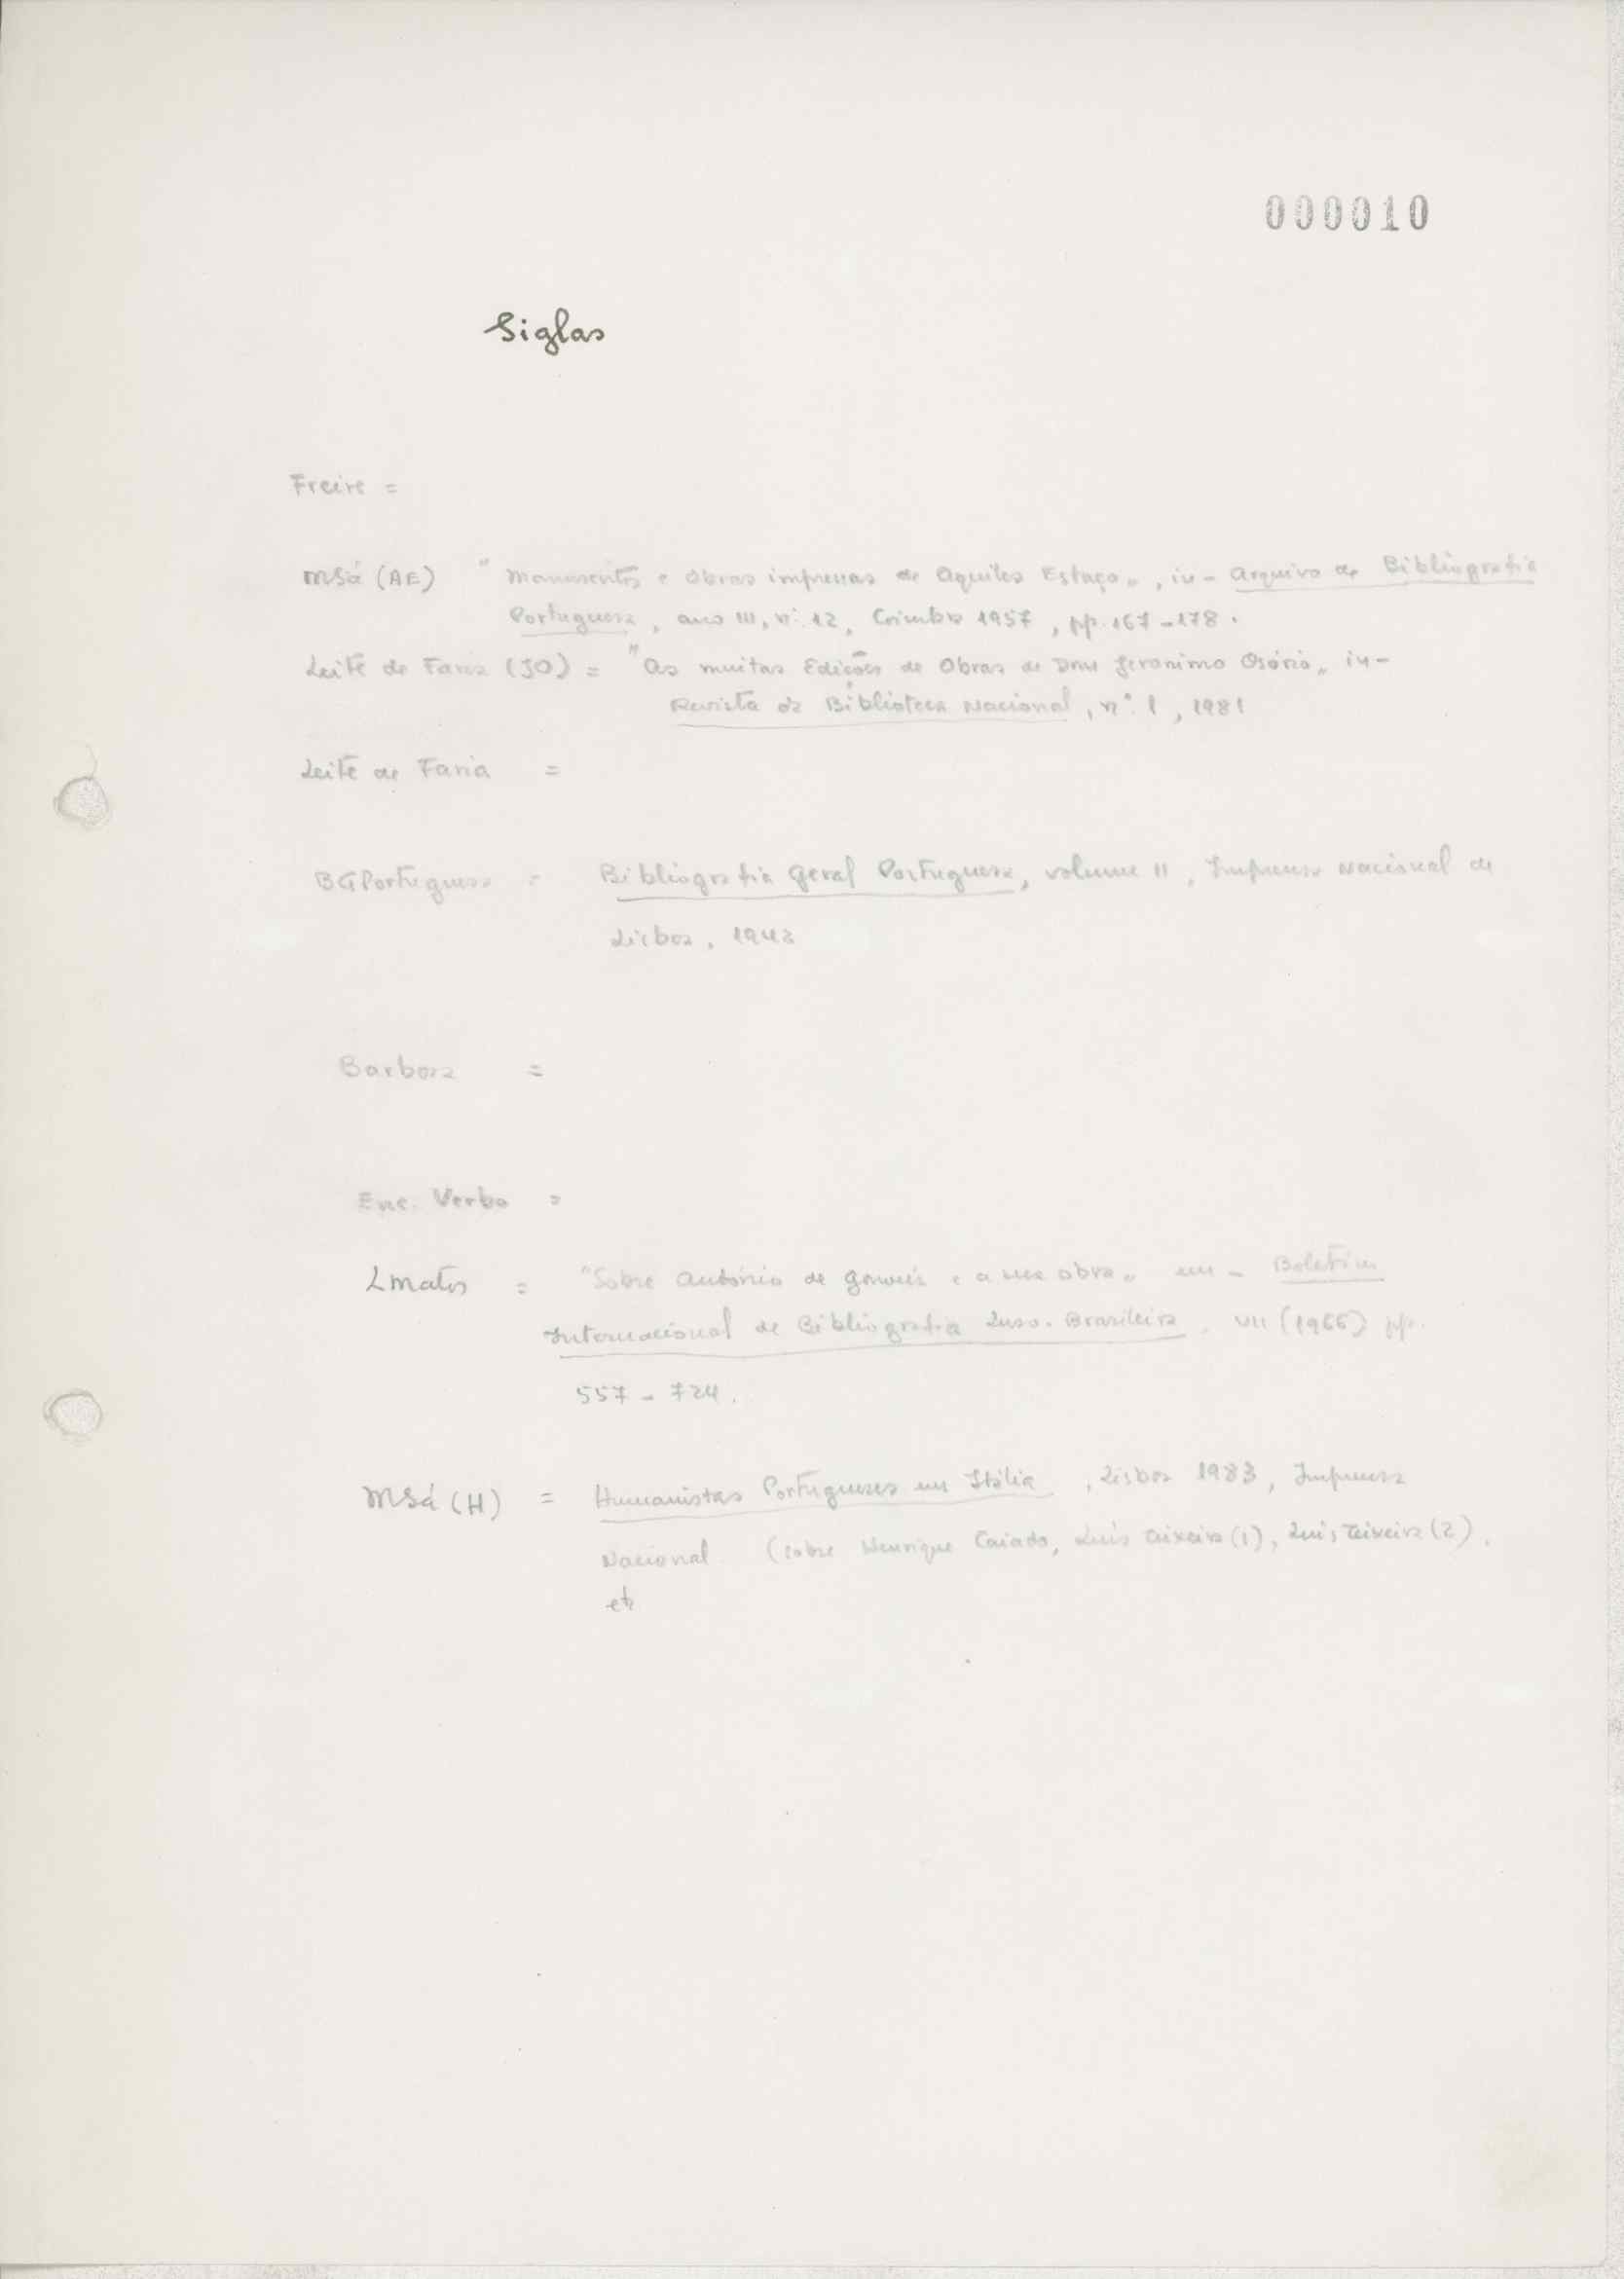 000010
Siglas
Freire =
MSá (AE) " Manuscritos e Obras impressas de Aquiles Estaço", in - Arquivo de Bibliografia
Portuguesa, ano III, nº 12, Coimbra 1957, pp. 167-178.
Leite de Faria (JO) = "As muitas Edições de Obras de Dom Jeronimo Osório" in -
Revista da Biblioteca Nacional, nº 1, 1981
Leite de Faria =
BGPortuguesa = Bibliografia Geral Portuguesa, volume II, Imprensa Nacional de
Lisboa,
Barbosa =
Enc. Verbo =
LMatos = "Sobre António de Gouveia e a sua obra" em - Boletim
Internacional de Bibliografia Luso-Brasileira, VII (1966) pp.
557 - 724.
MSá (H) = Humanistas Portugueses em Itália, Lisboa 1983, Imprensa
Nacional (sobre Henrique Caiado, Luís Teixeira (1), Luís Teixeira (2).
etc